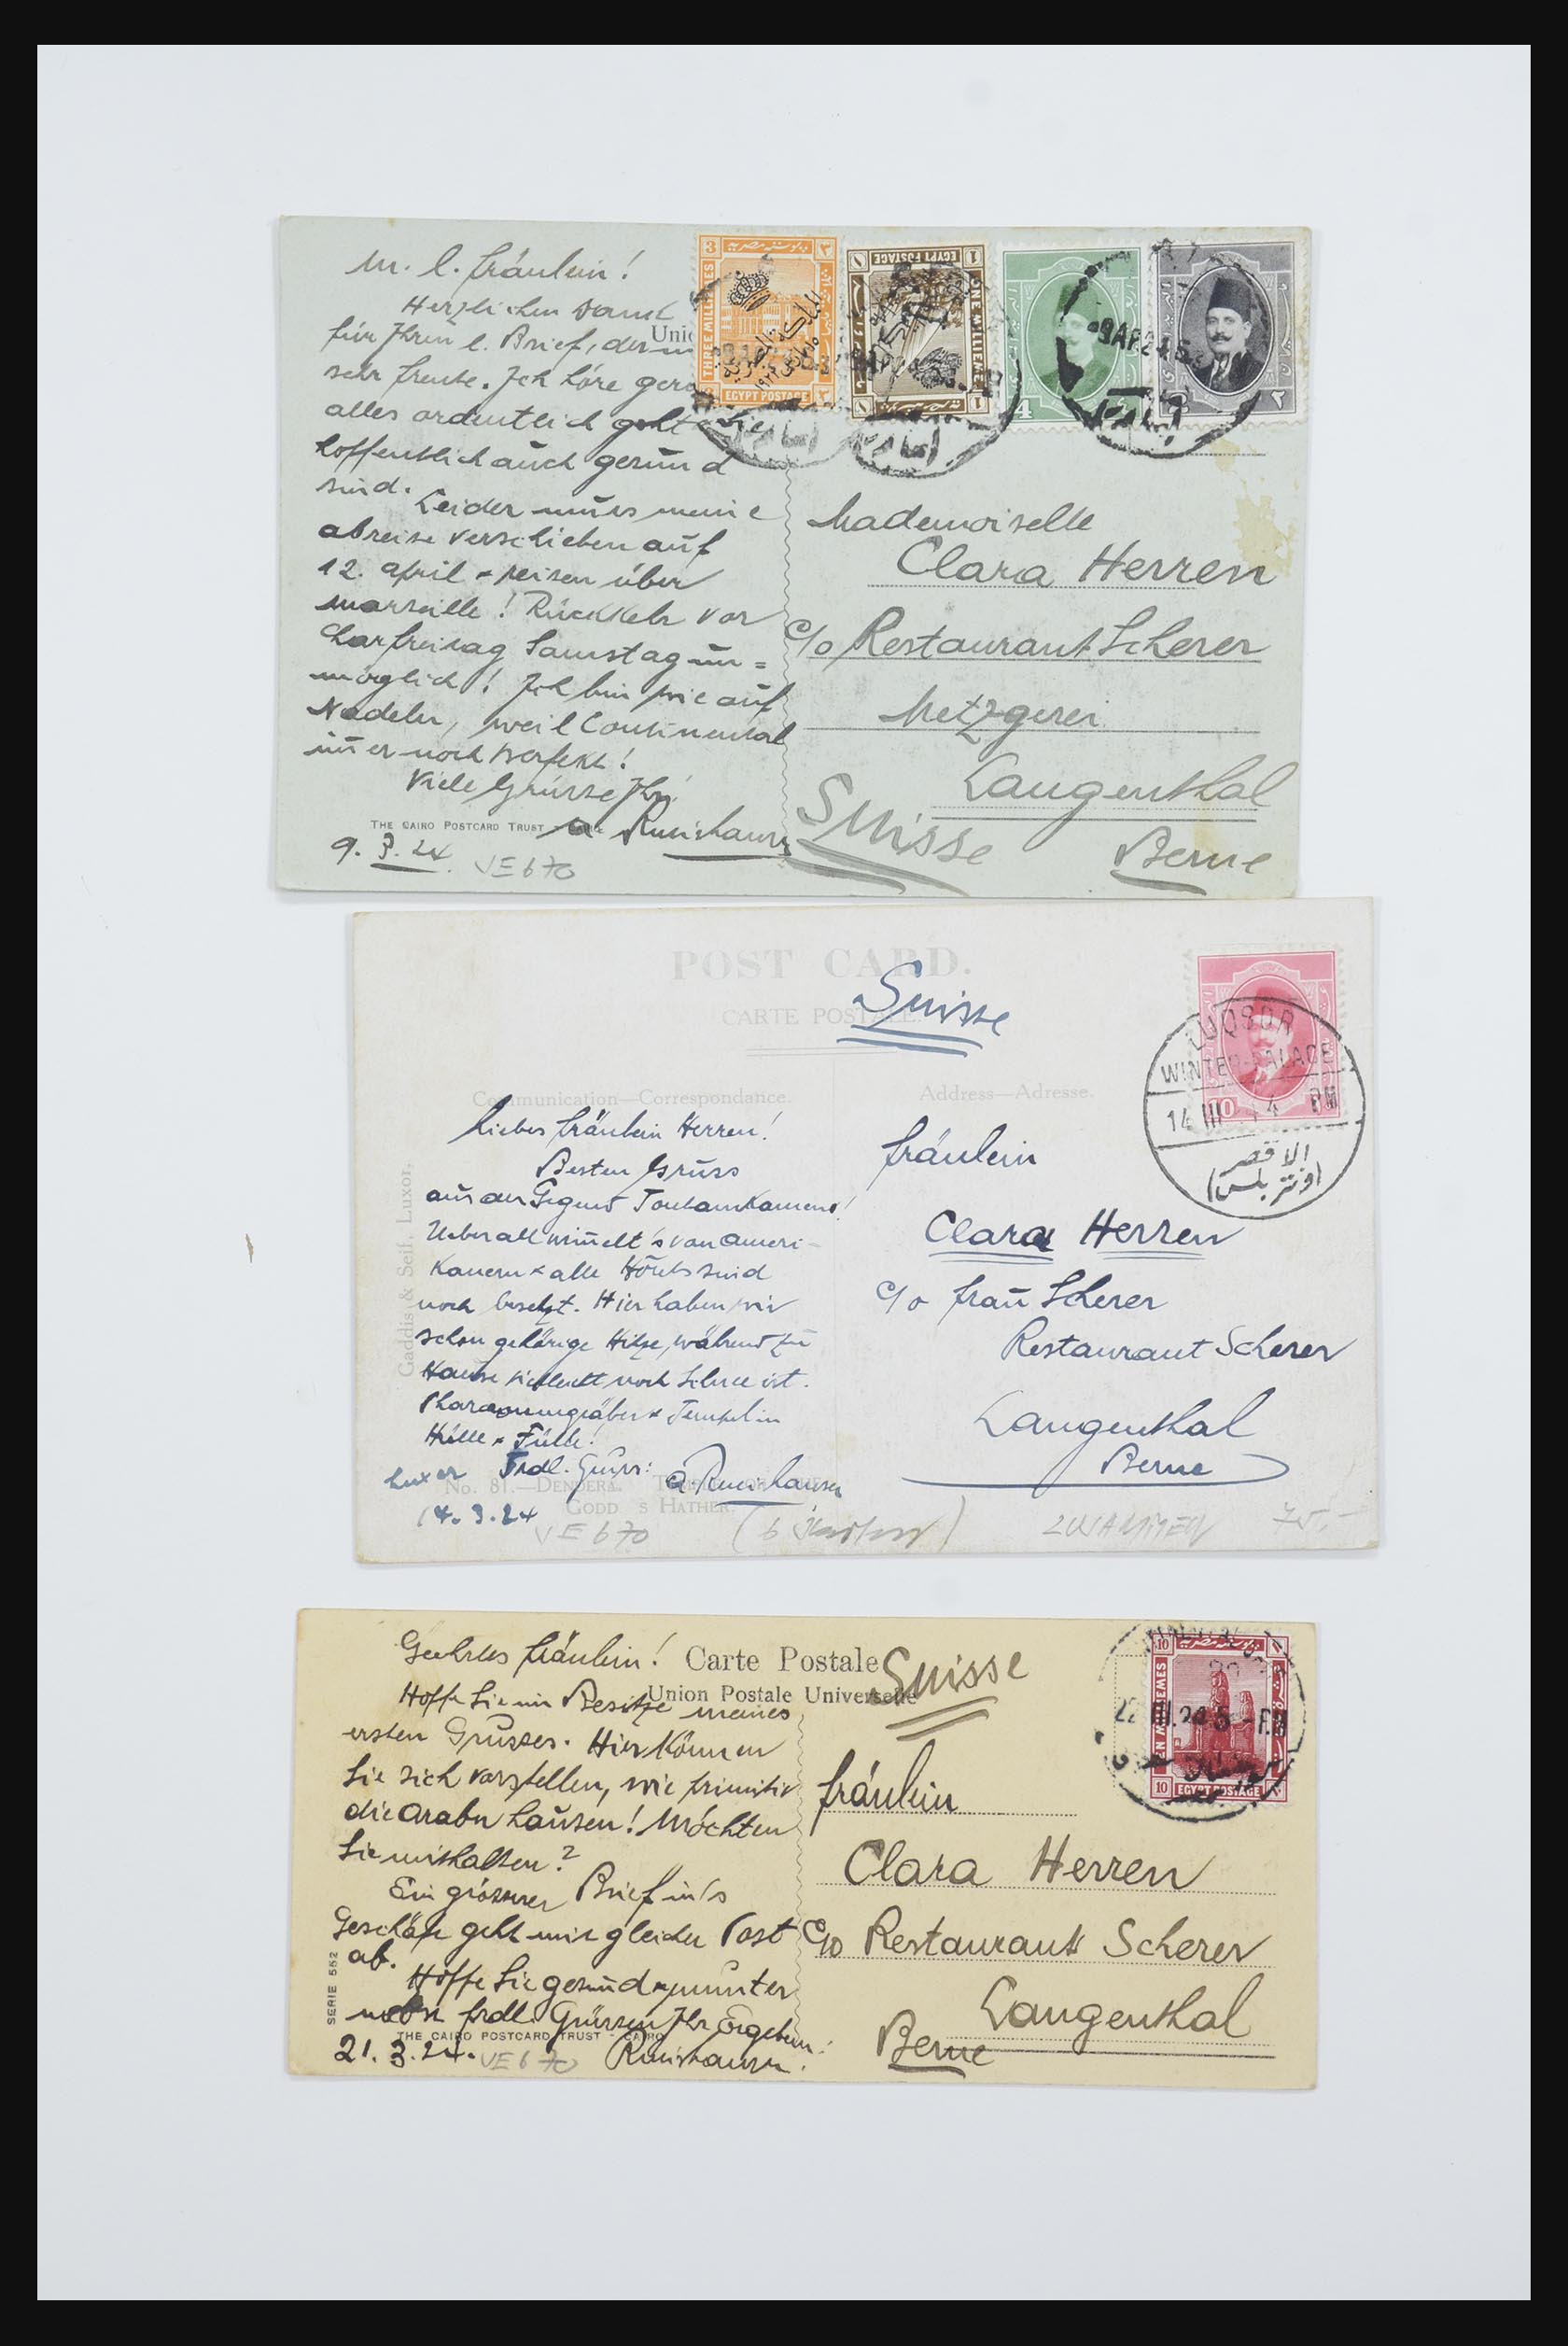 M. l. Fräulein!
Herzlichen Dank
für Ihren l. Brief, der m
sehr freute. Ich höre gern
alles ordentlich geht & Sie
hoffentlich auch gesund
sind.
Leider muss meine
Abreise verschieben auf
12. April & reisen über
Marseille! Rückkehr vor
Charfreitag Samstag un=
möglich! Ich bin wie auf
Nadeln, weil Continental
immer noch
Viele Grüsse Ihr
THE CAIRO POSTCARD TRUST
9. 3. 24
VE 670
Unio
3
THREE MILLIEMES
EGYPT POSTAGE
المملكة المصرية
EGYPT POSTAGE
1
ONE MILLIEME
4
٢
-9AP.24.5
Mademoiselle
Clara Herren
c/o Restaurant Scherer
Metzgerei
Langenthal
Suisse
Berne
POST CARD.
CARTE POSTALE.
Suisse
Communication—Correspondance.
Address—Adresse.
LUQSOR
WINTER-PALACE
14 III 24 PM
الاقصر
(ونتر بلس)
10
Liebes Fräulein Herren!
Besten Gruss
aus der Gegend Toutankamens!
Ueberall wimmelt's von Ameri-
kanern & alle Hôtels sind
noch besetzt. Hier haben wir
schon gehörige Hitze, während zu
Hause vielleicht noch Schnee ist.
Pharaonengräber & Tempel in
Hülle & Fülle!
Frdl. Gruss:
Luxor
14. 3. 24
Gaddis & Seif, Luxor.
No. 81.—DENDERA.
GODD S HATHER.
VE 670
75.-
Fräulein
Clara Herren
c/o Frau Scherer
Restaurant Scherer
Langenthal
Berne
Carte Postale
Union Postale Universelle
Suisse
Geehrtes Fräulein!
Hoffe Sie im Besitze meines
ersten Grusses. Hier können
Sie sich vorstellen, wie primitiv
die Araber hausen! Möchten
Sie mithalten?
Ein grösserer Brief in's
Geschäft geht mit gleicher Post
ab.
Hoffe Sie gesund & munter
nebst frdl. Grüssen Ihr Ergebener
21. 3. 24.
VE 670
SERIE 552
THE CAIRO POSTCARD TRUST - CAIRO
10
EGYPT POSTAGE
22 III.24 5 -PM
Fräulein
Clara Herren
c/o Restaurant Scherer
Langenthal
Berne